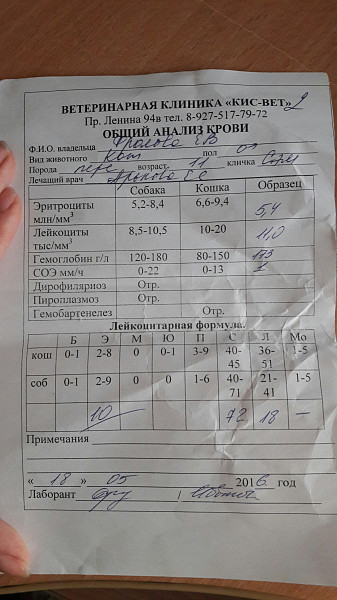 ВЕТЕРИНАРНАЯ КЛИНИКА «КИС-ВЕТ» 2
Пр. Ленина 94в тел. 8-927-517-79-72
ОБЩИЙ АНАЛИЗ КРОВИ
Ф.И.О. владельца Фролова ЕВ
Вид животного Кот пол
Порода перс возраст 11 кличка Сэм
Лечащий врач
Собака Кошка Образец
Эритроциты млн/мм³ 5,2-8,4 6,6-9,4 5,4
Лейкоциты тыс/мм³ 8,5-10,5 10-20 11,0
Гемоглобин г/л 120-180 80-150
СОЭ мм/ч 0-22 0-13
Дирофиляриоз Отр.
Пироплазмоз Отр.
Гемобартенелез Отр.
Лейкоцитарная формула.
Б Э М Ю П С Л Мо
кош 0-1 2-8 0 0-1 3-9 40-45 36-51 1-5
соб 0-1 2-9 0 0 1-6 40-71 21-41 1-5
10 72 18 –
Примечания
« 18 » 05 2016 год
Лаборант